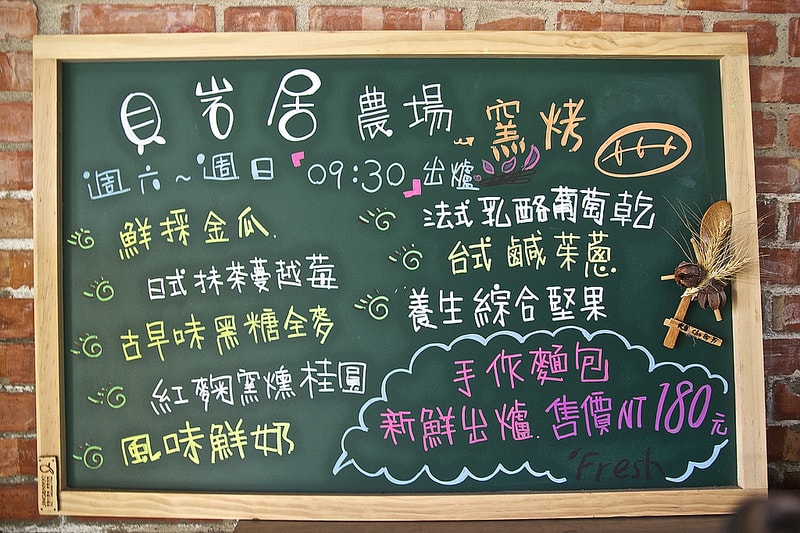 貝岩居農場 窯烤
週六~週日『09:30』出爐
鮮採金瓜
日式抹茶蔓越莓
古早味黑糖全麥
紅麴窯燻桂圓
風味鮮奶
法式乳酪葡萄乾
台式鹹茱蔥
養生綜合堅果
手作麵包
新鮮出爐 售價NT180元
Fresh